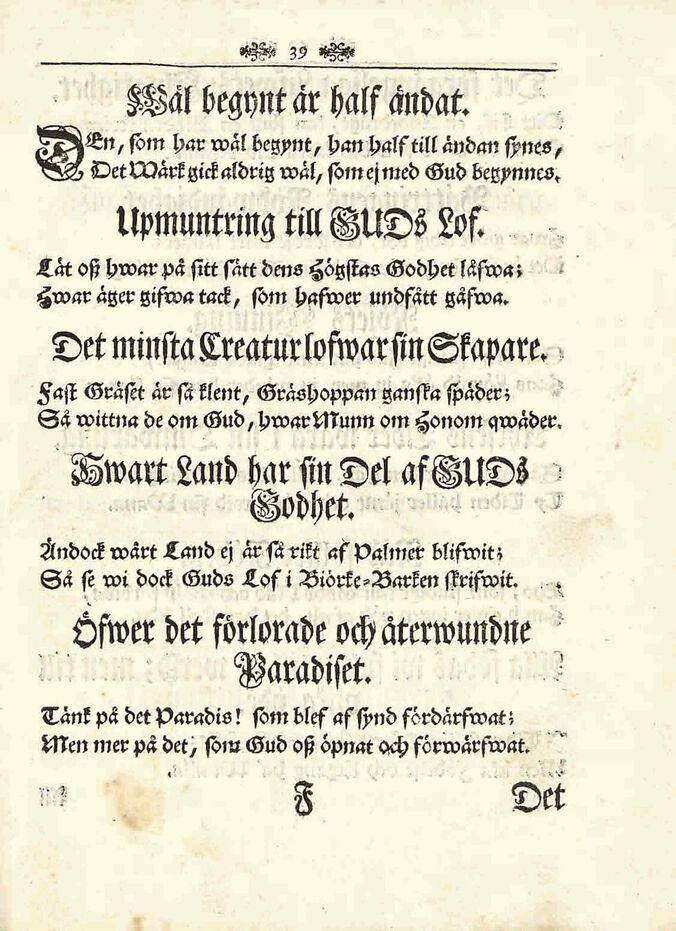 39
Wäl begynt är half ändat.
DEn, som har wäl begynt, han half till ändan synes,
Det Wärk gick aldrig wäl, som ej med Gud begynnes.
Upmuntring till GUDs Lof.
Låt oß hwar på sitt sätt dens Högstas Godhet låfwa;
Hwar äger gifwa tack, som hafwer undfått gåfwa.
Det minsta Creatur lofwar sin Skapare.
Fast Gräset är så klent, Gräshoppan ganska späder;
Så wittna de om Gud, hwar Munn om Honom qwäder.
Hwart Land har sin Del af GUDs
Godhet.
Ändock wårt Land ej är så rikt af Palmer blifwit;
Så se wi dock Guds Lof i Biörke-Barken skrifwit.
Öfwer det förlorade och återwundne
Paradiset.
Tänk på det Paradis! som blef af synd fördärfwat;
Men mer på det, som Gud oß öpnat och förwärfwat.
F Det